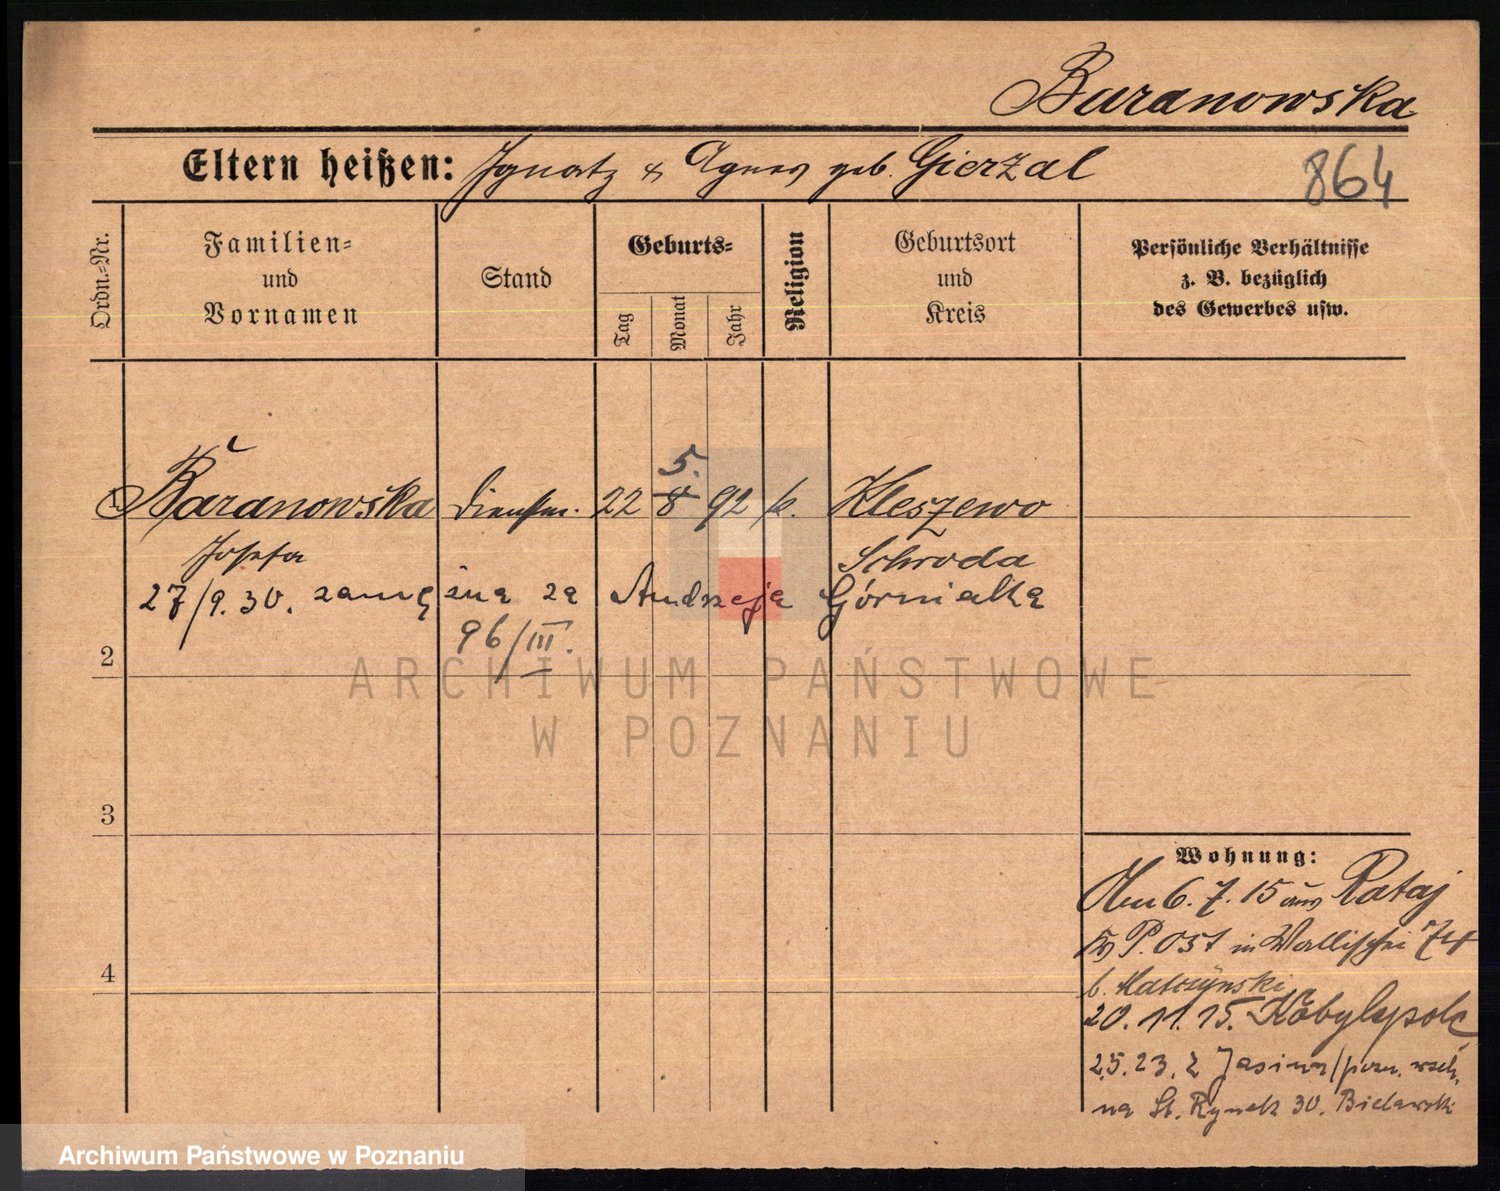 Baranowska
Eltern heißen: Ignatz & Agnes geb. Gierzal
864
Ordn.-Nr.
Familien-
und
Vornamen
Stand
Geburts-
Tag
Monat
Jahr
Religion
Geburtsort
und
Kreis
Persönliche Verhältnisse
z. B. bezüglich
des Gewerbes usw.
5.
1. Baranowska Dienstm. 22 8 92 k. Kleszewo
Josefa Schroda
27/9.30. zamężna za Andrzeja Górniaka
96/III.
2
3
4
Wohnung:
Am 6.7.15 aus Rataj
Kr P. Ost in Wallischei 74
b. Matczynski
20.11.15. Kobylepole
2.5.23. z Jasina/pow. wsch.
na St. Rynek 30. Bielawski
ARCHIWUM PAŃSTWOWE
W POZNANIU
Archiwum Państwowe w Poznaniu